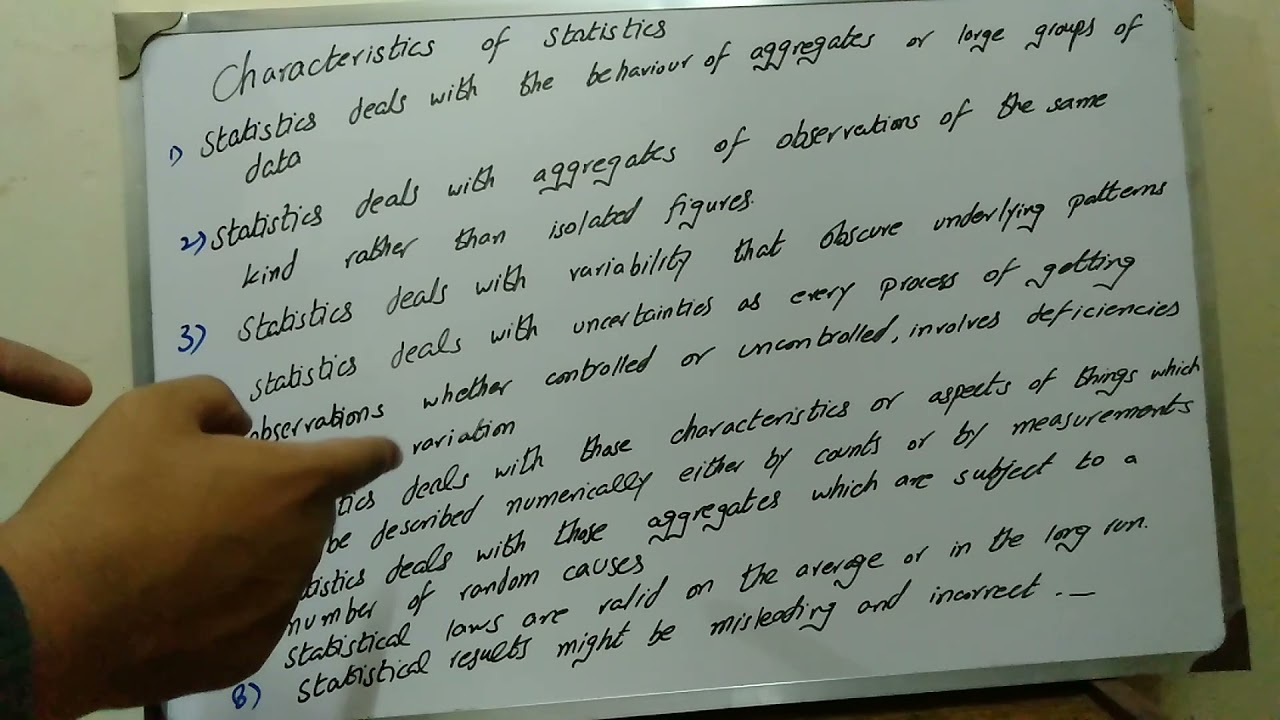 Characteristics of statistics
1) Statistics deals with the behaviour of aggregates or large groups of
data
2) Statistics deals with aggregates of observations of the same
kind rather than isolated figures.
3) Statistics deals with variability that obscure underlying patterns
Statistics deals with uncertainties as every process of getting
observations whether controlled or uncontrolled, involves deficiencies
variation
tics deals with those characteristics or aspects of things which
be described numerically either by counts or by measurements
tistics deals with those aggregates which are subject to a
number of random causes
Statistical laws are valid on the average or in the long run.
8) Statistical results might be misleading and incorrect . _